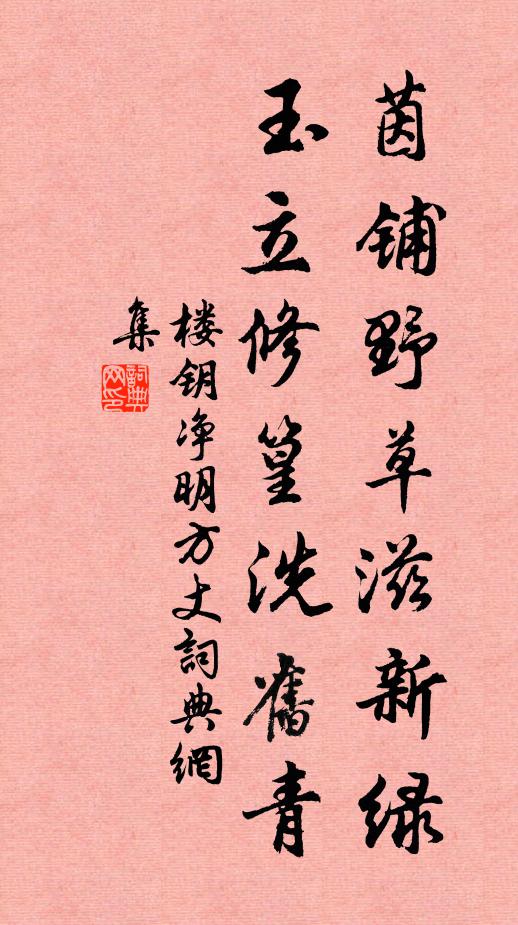 茵铺野草滋新绿
玉立修篁洗舊青
楼钥净明方丈詞典網
集
詞典网印